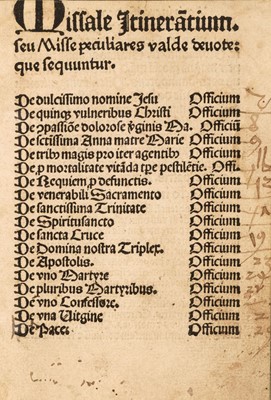 Missale Itinerãtium.
seu Misse peculiares valde deuote:
que sequuntur.
De dulcissimo nomine Jesu Officium
De quinqꝫ vulneribus Christi Officium
De ꝯpassiõe dolorose v̾ginis Ma. Officiũ
De sctissima Anna matre Marie Officium
De tribꝰ magis pro iter agentibꝰ Officium
De, p mortalitate vitãda tp̃e pestilẽtie. Offi.
De Requiem, p defunctis. Officium
De venerabili Sacramento Officium
De sanctissima Trinitate Officium
De Spiritusancto Officium
De sancta Cruce Officium
De Domina nostra Triplex. Officium
De Apostolis. Officium
De vno Martyre Officium
De pluribus Martyribus. Officium
De vno Confessore. Officium
De vna Uirgine Officium
De Pace: Officium